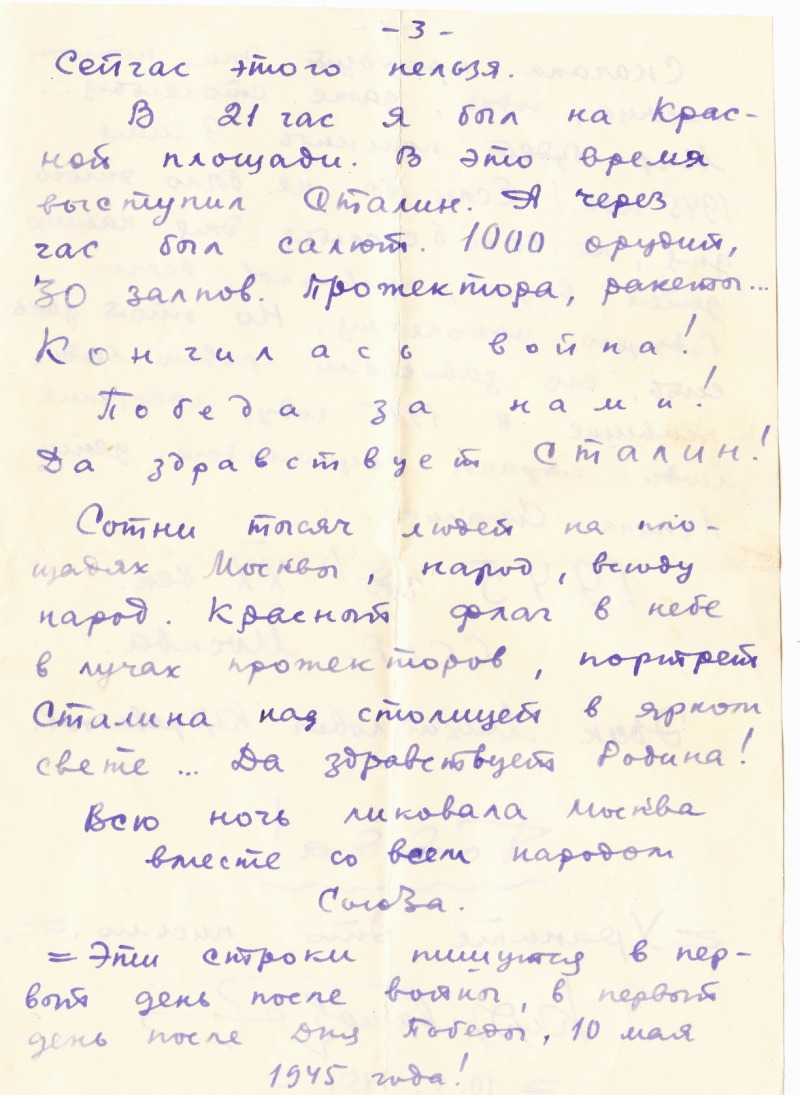 - 3 -
Сейчас этого нельзя.
В 21 час я был на Крас-
ной площади. В это время
выступил Сталин. А через
час был салют. 1000 орудий,
30 залпов. Прожектора, ракеты...
Кончилась война!
Победа за нами!
Да здравствует Сталин!
Сотни тысяч людей на пло-
щадях Москвы, народ, всюду
народ. Красный флаг в небе
в лучах прожекторов, портрет
Сталина над столицей в ярком
свете ... Да здравствует Родина!
Всю ночь ликовала Москва
вместе со всем народом
Союза.
= Эти строки пишутся в пер-
вый день после войны, в первый
день после Дня Победы, 10 мая
1945 года!